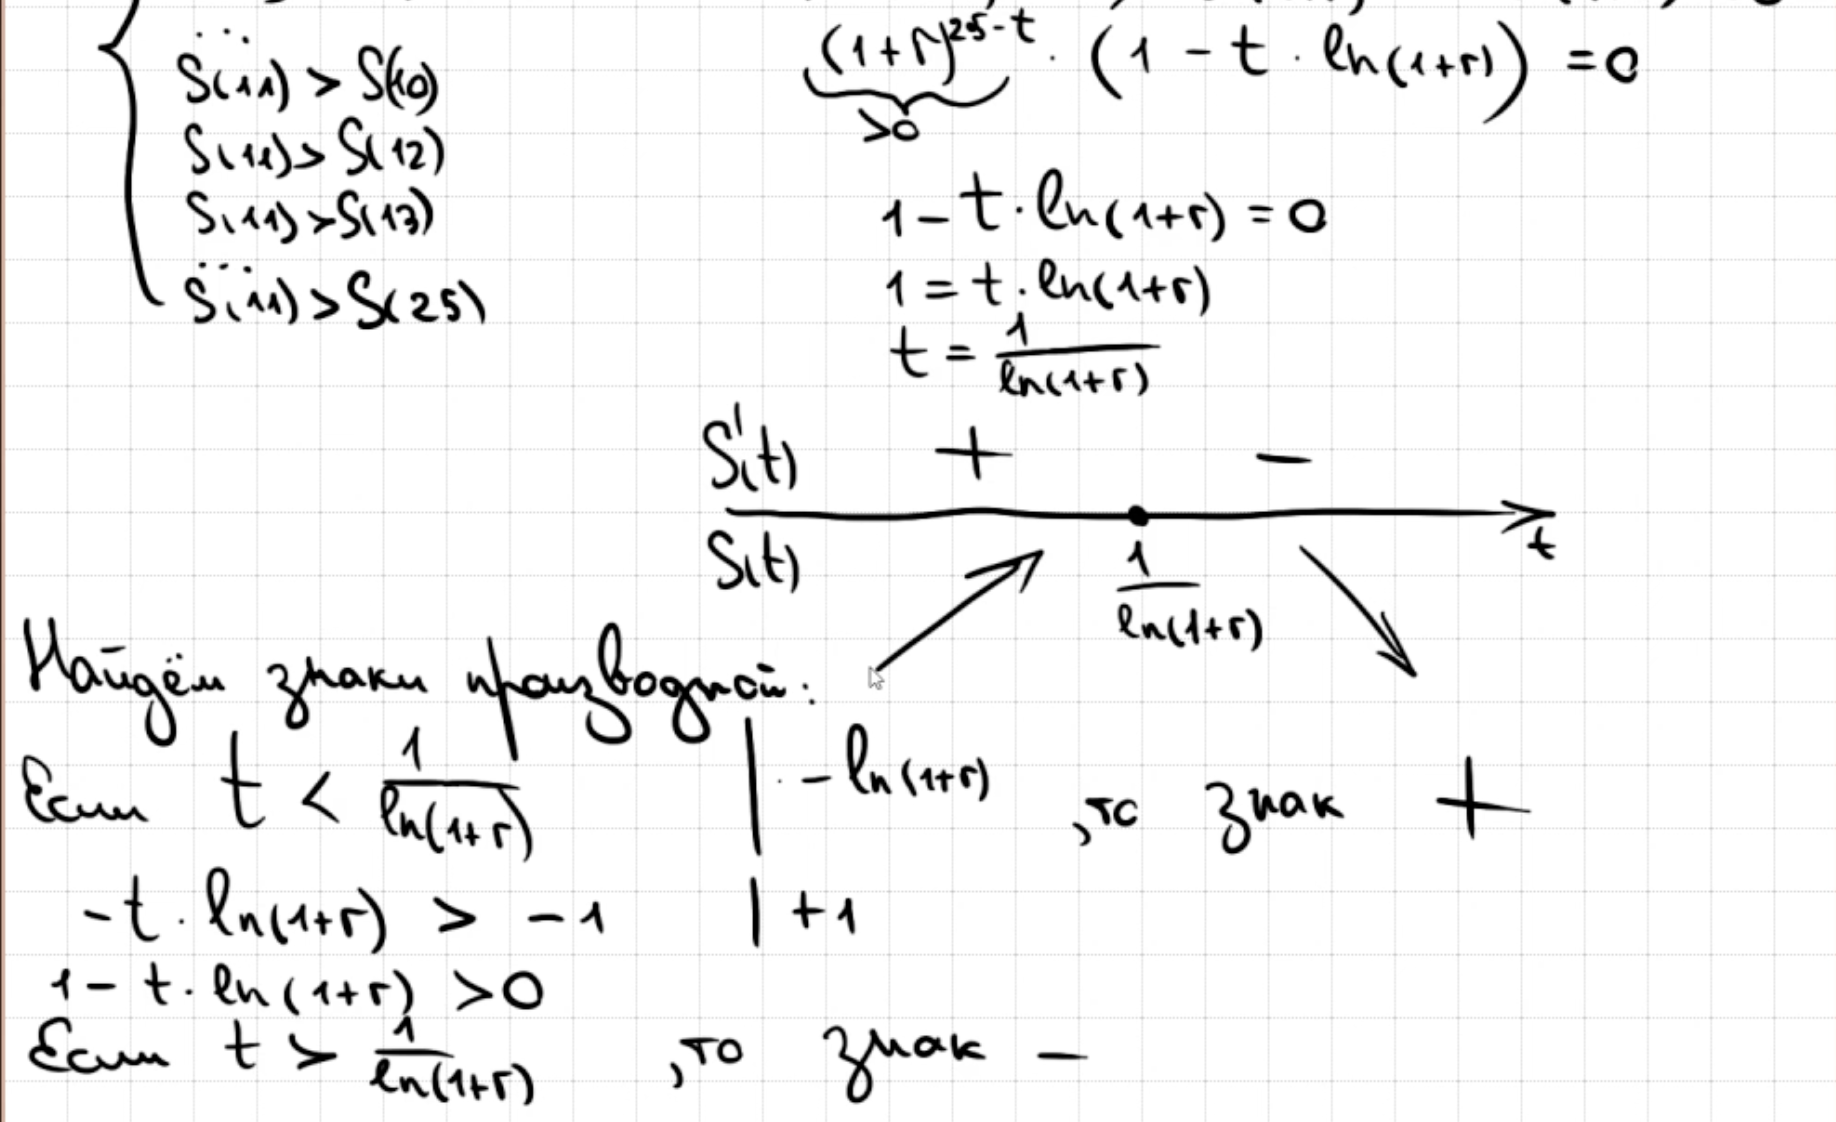 ...
S(11) > S(10)
S(11) > S(12)
S(11) > S(13)
...
S(11) > S(25)
(1+r)^25-t · (1 - t · ln(1+r)) = 0
>0
1 - t · ln(1+r) = 0
1 = t · ln(1+r)
t = 1/ln(1+r)
S'(t) + -
S(t) 1/ln(1+r) t
Найдём знаки производной:
Если t < 1/ln(1+r) | · - ln(1+r) , то знак +
-t · ln(1+r) > -1 | +1
1 - t · ln(1+r) > 0
Если t > 1/ln(1+r) , то знак -